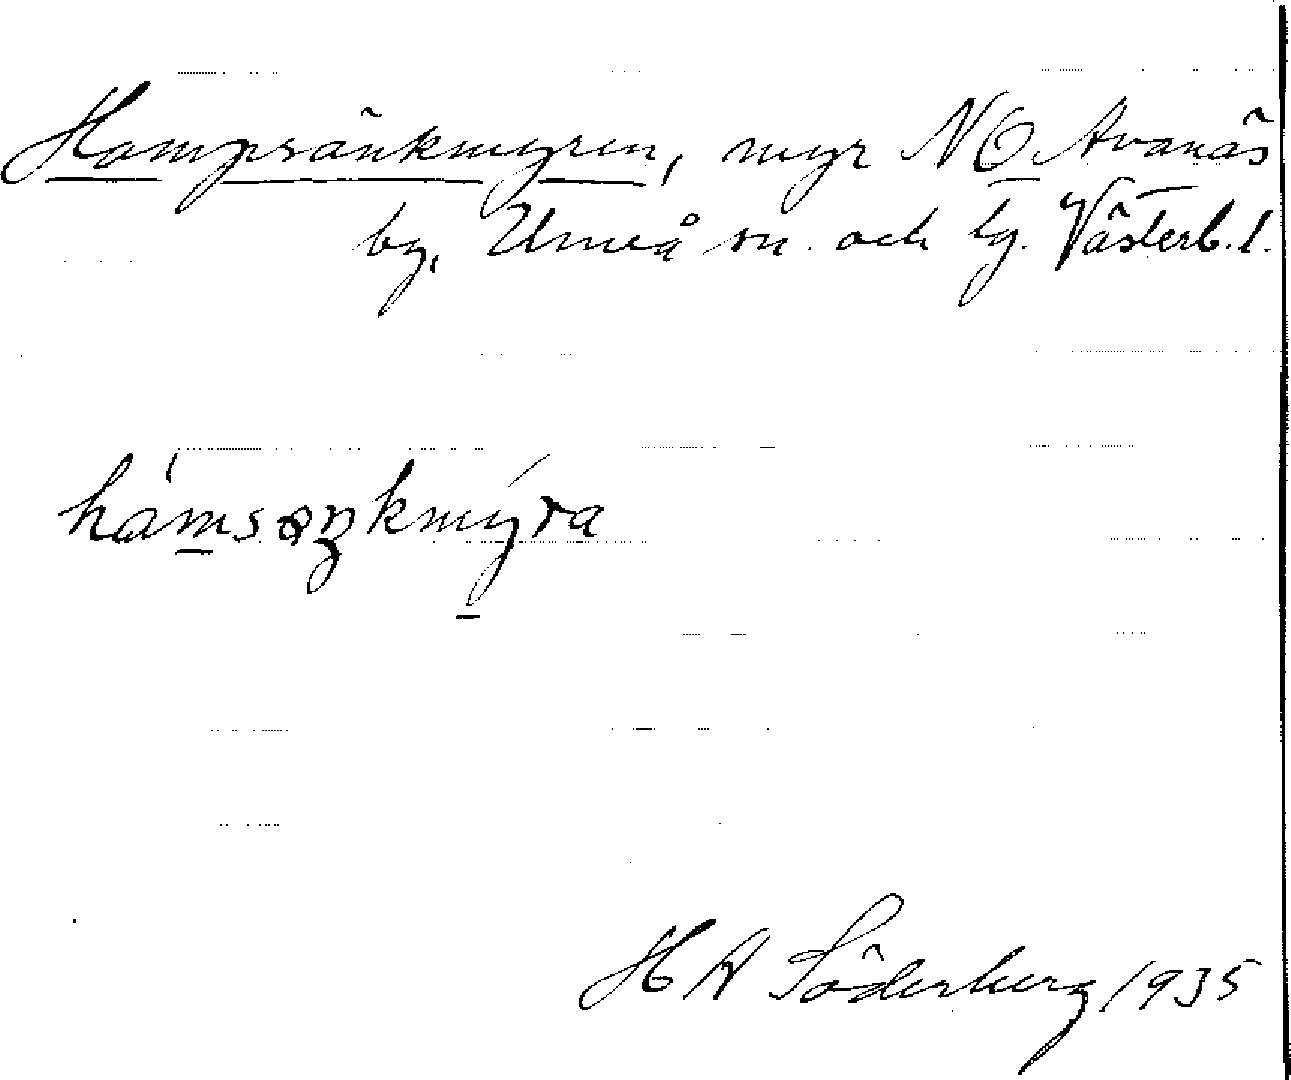 Hampsänkmyren, myr NO Avanäs
by, Umeå sn. och tg. Västerb. l.
hámsaŋkmýra
H A Söderberg 1935